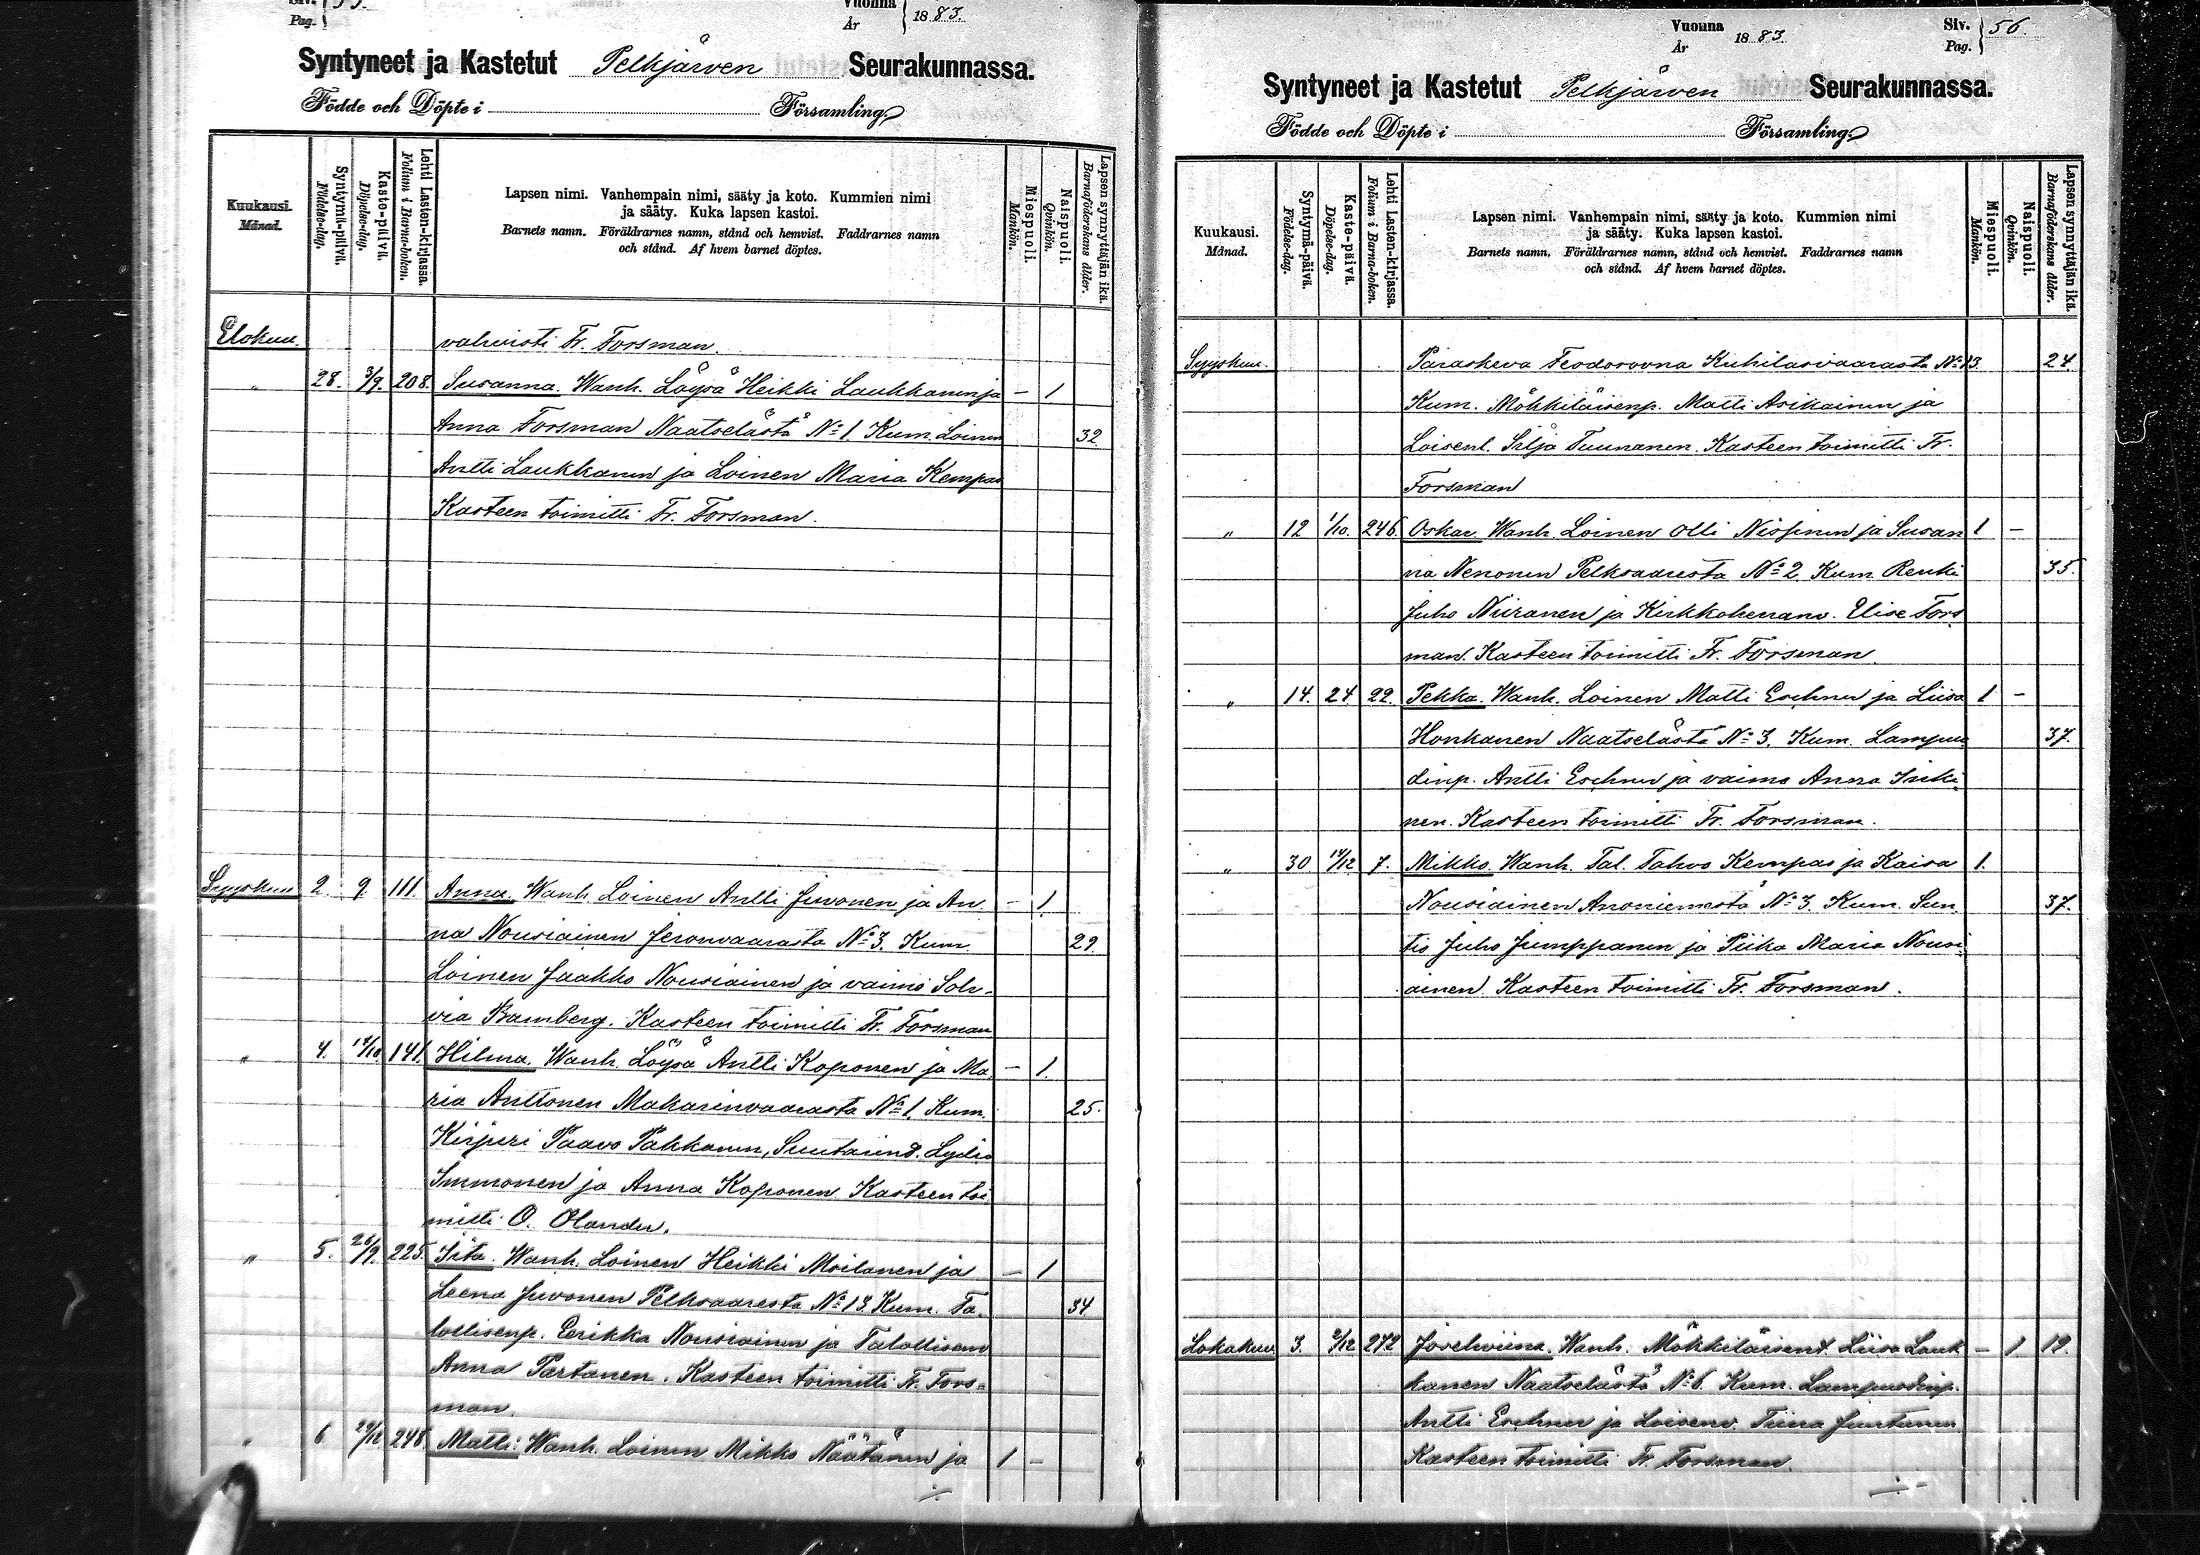 Siv. 55.
Pag.
Vuonna 1883.
År
Syntyneet ja Kastetut Pelkjärven Seurakunnassa.
Födde och Döpte i Församling.
Kuukausi.
Månad.
Syntymä-päivä.
Födelse-dag.
Kasto-päivä.
Döpelse-dag.
Lehti Lasten-kirjassa.
Folium i Barna-boken.
Lapsen nimi. Vanhempain nimi, sääty ja koto. Kummien nimi
ja sääty. Kuka lapsen kastoi.
Barnets namn. Föräldrarnes namn, stånd och hemvist. Faddrarnes namn
och stånd. Af hvem barnet döptes.
Miespuoli.
Mankön.
Naispuoli.
Qvinkön.
Lapsen synnyttäjän ikä.
Barnaföderskans ålder.
Elokuu. vahvisti Fr. Forsman.
" 28. 3/9. 208. Susanna. Wanh. Löysä Heikki Laukkanen ja — 1
Anna Forsman Naatselästä No 1 Kum. Loinen 32
Antti Laukkanen ja Loinen Maria Kempas
Kasteen toimitti Fr. Forsman.
Syyskuu 2. 9. 111. Anna. Wanh. Loinen Antti Juvonen ja An- — 1.
na Nousiainen Jeronvaarasta No 3. Kum. 29.
Loinen Jaakko Nousiainen ja vaimo Soh-
via Bamberg. Kasteen toimitti Fr. Forsman
" 4. 14/10 141. Hilma. Wanh. Löysä Antti Koponen ja Ma- — 1.
ria Anttonen Makarinvaarasta No 1. Kum. 25.
Kirjuri Paavo Pakkanen, Suutarind. Lydia
Immonen ja Anna Koponen Kasteen toi
mitti O. Olander.
" 5. 26/9. 225. Iita. Wanh. Loinen Heikki Moilanen ja — 1
Leena Juvonen Pelksaaresta No 13. Kum. Ta- 34
lollisenp. Eerikka Nousiainen ja Talollisenv
Anna Partanen. Kasteen toimitti Fr. Fors=
man.
" 6 29/12 248. Matti: Wanh. Loinen Mikko Näätänen ja 1 —
Vuonna 1883.
År
Siv. 56.
Pag.
Syntyneet ja Kastetut Pelkjärven Seurakunnassa.
Födde och Döpte i Församling.
Kuukausi.
Månad.
Syntymä-päivä.
Födelse-dag.
Kaste-päivä.
Döpelse-dag.
Lehti Lasten-kirjassa.
Folium i Barna-boken.
Lapsen nimi. Vanhempain nimi, sääty ja koto. Kummien nimi
ja sääty. Kuka lapsen kastoi.
Barnets namn. Föräldrarnes namn, stånd och hemvist. Faddrarnes namn
och stånd. Af hvem barnet döptes.
Miespuoli.
Mankön.
Naispuoli.
Qvinkön.
Lapsen synnyttäjän ikä.
Barnaföderskans ålder.
Syyskuu. Paraskeva Feodorovna Kuhilasvaarasta No 13. 24.
Kum. Mökkiläisenp. Matti Asikainen ja
Loisent. Silja Tuunanen. Kasteen toimitti Fr.
Forsman
" 12 1/10. 246. Oskar. Wanh. Loinen Olli Nissinen ja Susan 1 —
na Nenonen Pelksaaresta No 2 Kum. Renki 35.
Juho Niiranen ja Kirkkoherranv. Elise Fors
man. Kasteen toimitti Fr. Forsman.
" 14. 24 22. Pekka. Wanh. Loinen Matti Eschner ja Liisa 1 —
Honkanen Naatselästä No 3. Kum. Lampuo 37.
dinp. Antti Eschner ja vaimo Anna Inki-
nen. Kasteen toimitti Fr. Forsman.
" 30 14/12 7. Mikko. Wanh. Tal. Tahvo Kempas ja Kaisa 1.
Nousiainen Anoniemestä No 3. Kum. Sun- 37.
tio Juho Jumppanen ja Piika Maria Nousi
ainen. Kasteen toimitti Fr. Forsman.
Lokakuu 3. 2/12 272 Joselviina. Wanh. Mökkiläisent. Liisa Lauk — 1. 19.
kanen Naatselästä No 6. Kum. Lampuodinp.
Antti Eschner ja Loisenv. Tiina Juntunen
Kasteen toimitti Fr. Forsman.